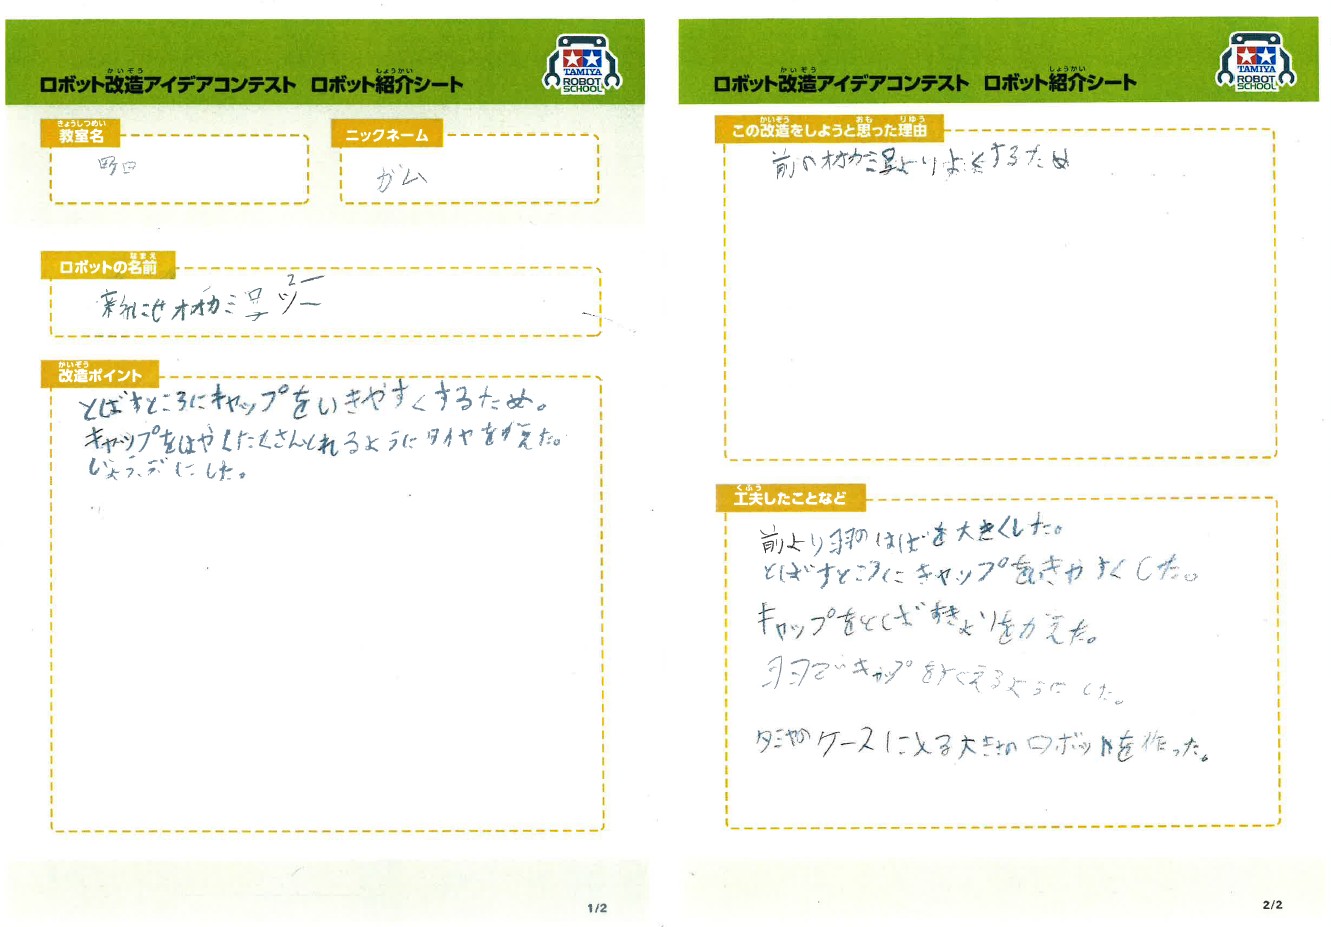 かいぞう しょうかい
ロボット改造アイデアコンテスト ロボット紹介シート
TAMIYA
ROBOT
SCHOOL
きょうしつめい
教室名
ニックネーム
野田
ガム
なまえ
ロボットの名前
オオカミ号ツー
2
かいぞう
改造ポイント
とばすところにキャップをいきやすくするため。
キャップをはやくたくさんとれるようにタイヤをかえた。
にした。
1/2
かいぞう しょうかい
ロボット改造アイデアコンテスト ロボット紹介シート
TAMIYA
ROBOT
SCHOOL
かいぞう おも りゆう
この改造をしようと思った理由
前のオオカミ号よりよくするため
くふう
工夫したことなど
前より羽のはばを大きくした。
とばすところにキャップをいきやすくした。
キャップをとばすきょりをかえた。
羽でキャップを えるようにした。
タミヤのケースに入る大きさのロボットを作った。
2/2